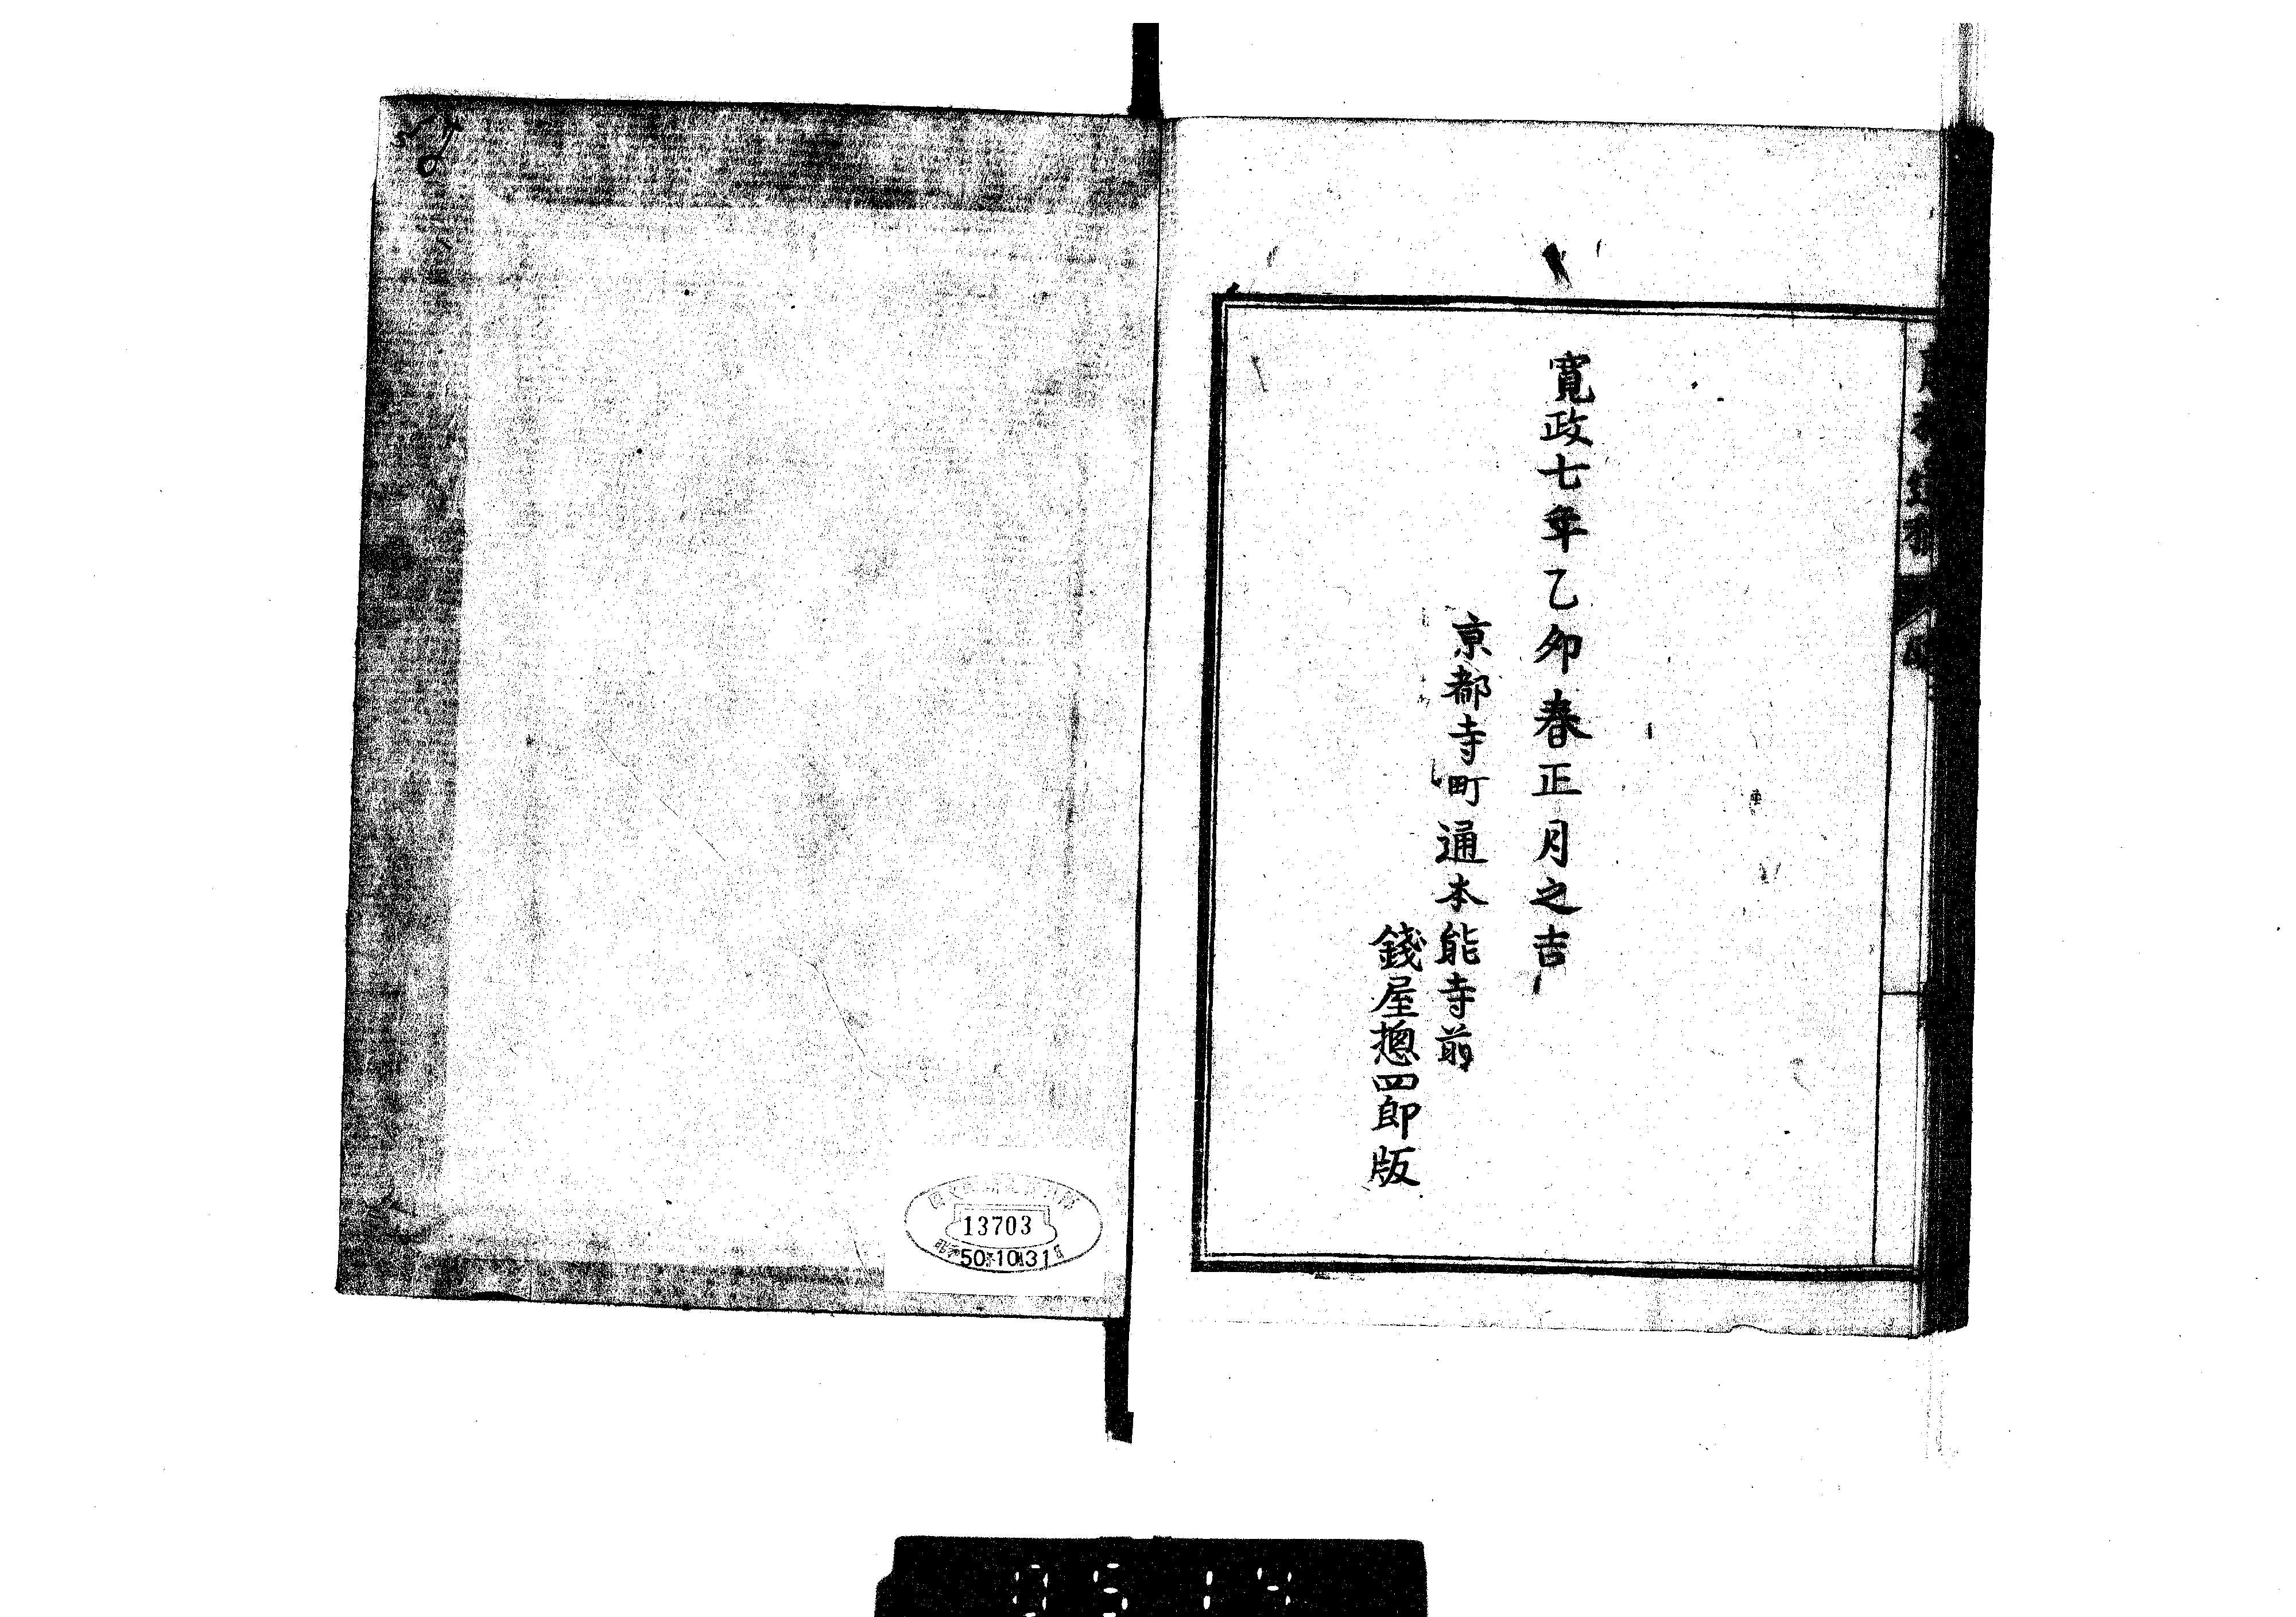 寛政七年乙卯春正月之吉
京都寺町通本能寺前
錢屋摠四郎版
13703
昭和50.10.31